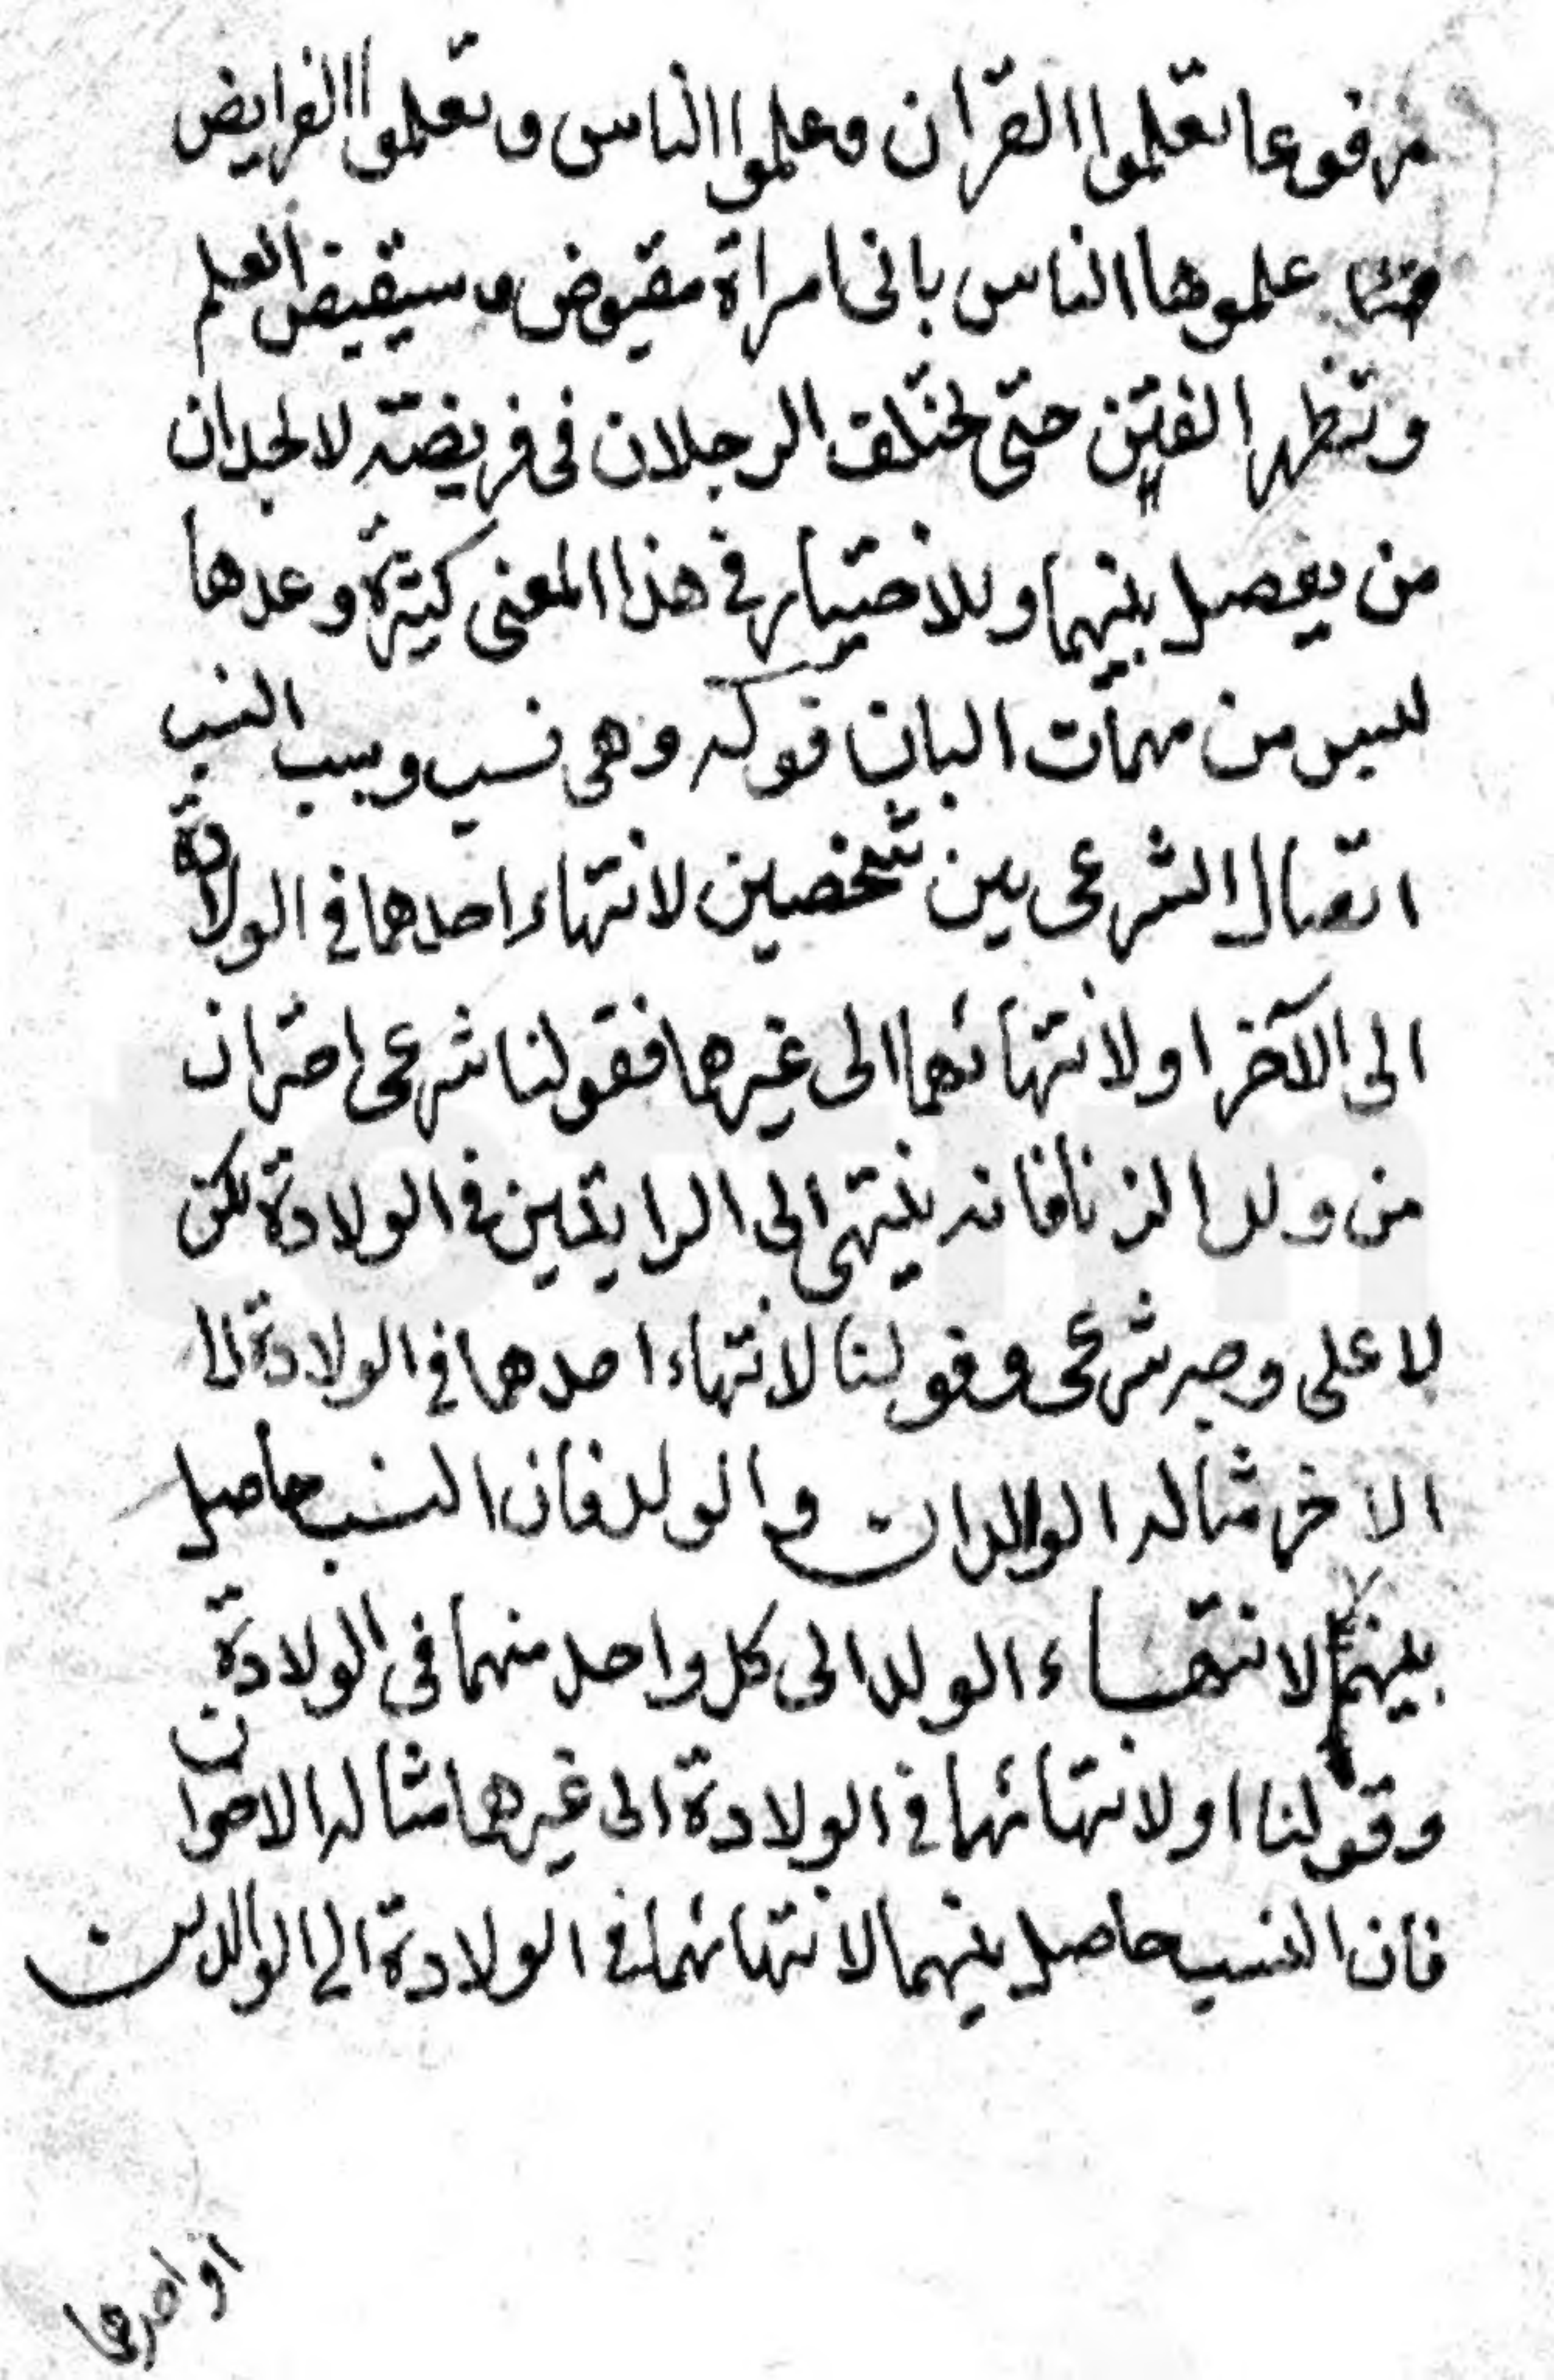 مرفوعا تعلموا القران وعلموا الناس وتعلموا الفرايض
علموها الناس بانى امراة مقبوض وسيقبض العلم
وتظهر الفتن حتى يختلف الرجلان فى فريضته لا يجدان
من يفصل بينهما وللاختيار فى هذا المعنى كثيرة وعدها
ليس من مهمات البان قوله وهى نسب وسبب النسب
اتصال الشرعى بين شخصين لانتهاء احدهما فى الولادة
الى الآخر او لانتهائهما الى غيرهما فقولنا شرعى احتران
من ولد الزنا فانه ينتهى الى الرايتين فى الولادة لكن
لا على وجه شرعى وقولنا لانتهاء احدهما فى الولادة الى
الاخر مثاله الوالدان والولد فان النسب حاصل
بينهما لانتهاء الولد الى كل واحد منهما فى الولادة
وقولنا او لانتهائهما فى الولادة الى غيرهما مثاله الاخوان
فان النسب حاصل بينهما لانتهائهما فى الولادة الى الوالدين
او احدهما